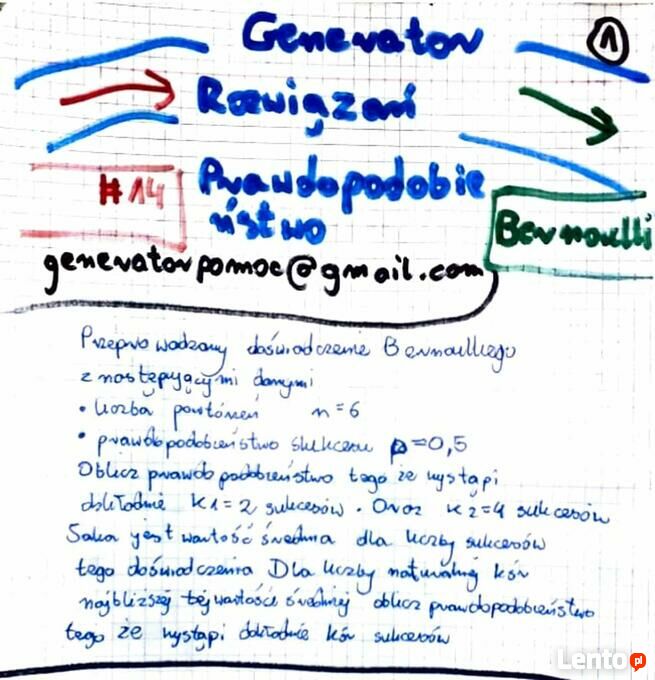 Generator
1
Rozwiązań
#14
Prawdopodobie
ństwo
Bernoulli
generatorpomoc@gmail.com
Przeprowadzamy doświadczenie Bernoulliego
z następującymi danymi
• liczba powtórzeń n=6
• prawdopodobieństwo sukcesu p=0,5
Oblicz prawdopodobieństwo tego że wystąpi
dokładnie k1=2 sukcesów. Oraz k2=4 sukcesów
Jaka jest wartość średnia dla liczby sukcesów
tego doświadczenia Dla liczby naturalnej kśr
najbliższej tej wartości średniej oblicz prawdopodobieństwo
tego że wystąpi dokładnie kśr sukcesów
Lento.pl